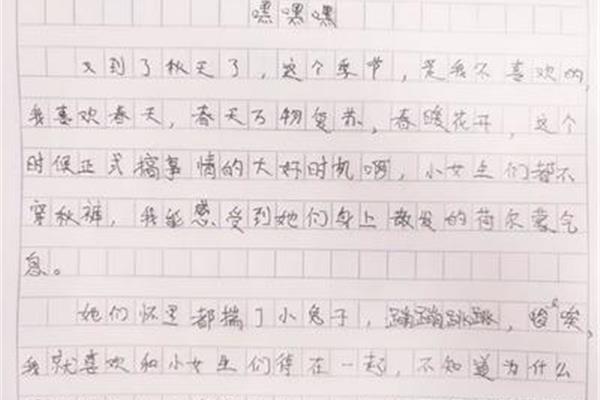 嘿嘿嘿
又到了秋天了，这个季节，是我不喜欢的，
我喜欢春天，春天万物复苏，春暖花开，这个
时候正式搞事情的大好时机啊，小女生们都不
穿秋裤，我能感受到她们身上散发的荷尔蒙气
息。
她们怀里都揣了小兔子，蹦蹦跳跳，唉，
我就喜欢和小女生们待在一起，不知道为什么